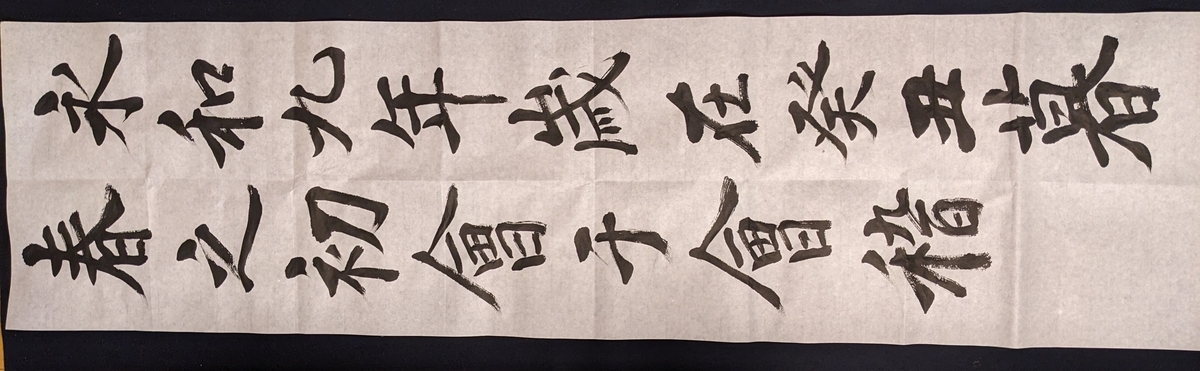 永和九年歲在癸丑暮
春之初會于會稽